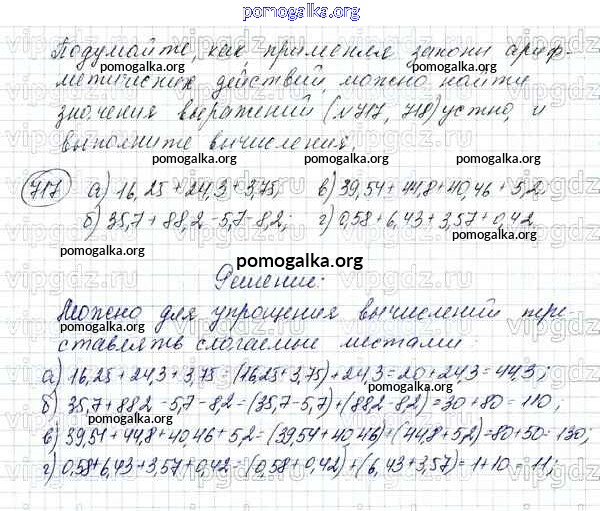 pomogalka.org
Подумайте, как, применяя законы ариф-
метических действий, можно найти
pomogalka.org
значения выражений (№717, 718) устно, и
выполните вычисления.
pomogalka.org pomogalka.org
717 а) 16,25+24,3+3,75; в) 39,54+44,8+40,46+5,2
б) 35,7+88,2-5,7-8,2; г) 0,58+6,43+3,57+0,42.
pomogalka.org pomogalka.org
pomogalka.org
Решение:
Можно для упрощения вычислений пере-
pomogalka.org pomogalka.org
ставлять слагаемые местами:
pomogalka.org
а) 16,25+24,3+3,75=(16,25+3,75)+24,3=20+24,3=44,3;
pomogalka.org
б) 35,7+88,2-5,7-8,2=(35,7-5,7)+(88,2-8,2)=30+80=110,
pomogalka.org
в) 39,54+44,8+40,46+5,2=(39,54+40,46)+(44,8+5,2)=80+50=130;
г) 0,58+6,43+3,57+0,42=(0,58+0,42)+(6,43+3,57)=1+10=11;
pomogalka.org pomogalka.org